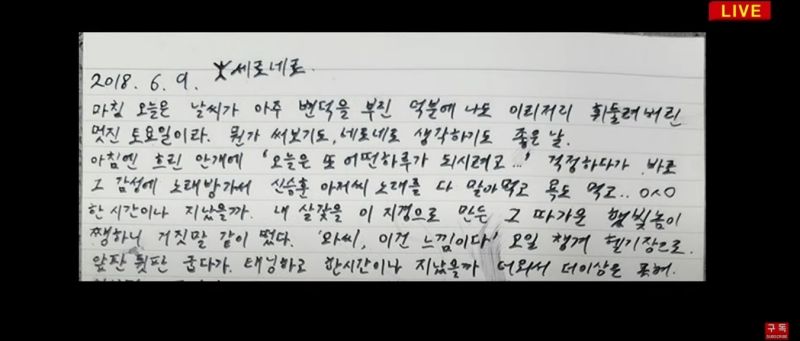 LIVE
2018. 6. 9. 세로네로.
마침 오늘은 날씨가 아주 변덕을 부린 덕분에 나도 이리저리 휘둘려버린
멋진 토요일이라. 뭔가 써보기도, 네로네로 생각하기도 좋은 날.
아침엔 흐린 안개에 '오늘은 또 어떤하루가 되시려고...' 걱정하다가 바로
그 감성에 노래방가서 신승훈 아저씨 노래를 다 말아먹고 욕도 먹고.. ㅇㅅㅇ
한시간이나 지났을까. 내 살갗을 이 지경으로 만든 그 따가운 햇빛놈이
쨍하니 거짓말 같이 떴다. '와씨, 이건 느낌이다' 요일 챙겨 헬기장으로.
앞판 뒷판 굽다가. 태닝하고 한시간이나 지났을까 더와서 더이상은 못해.
구독
SUBSCRIBE